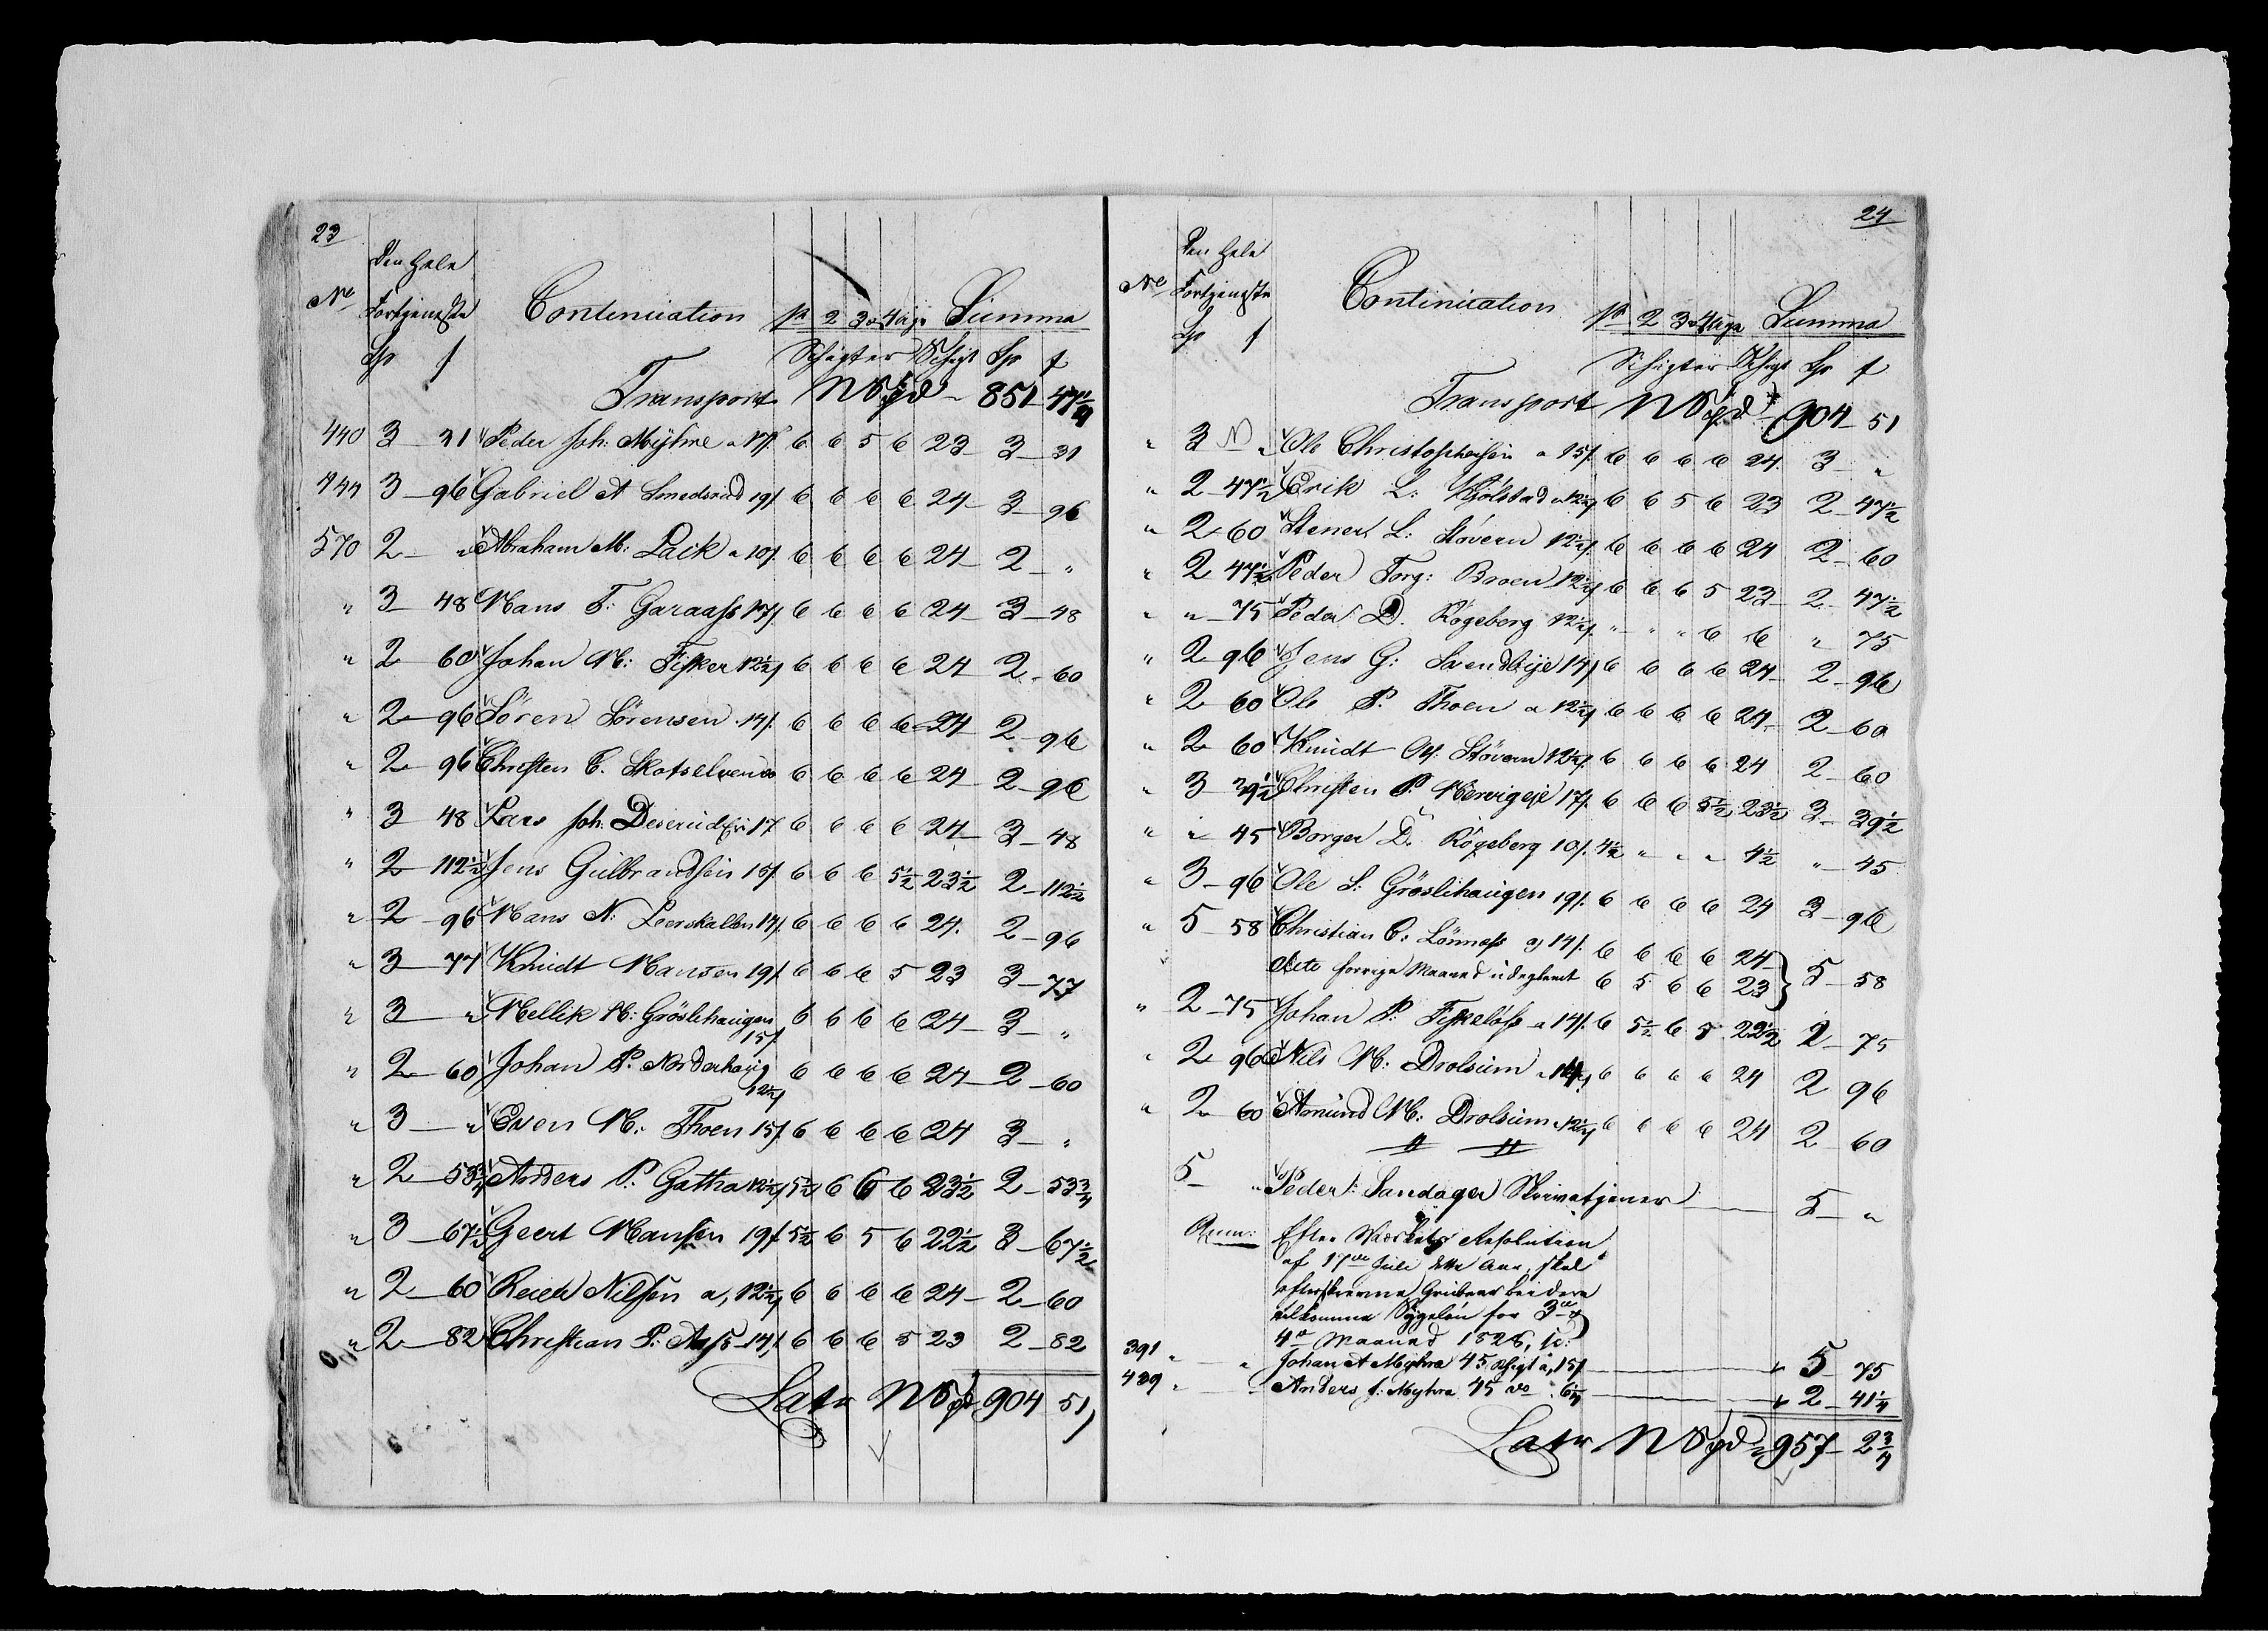 23
Den hele
No Fortjeneste Continuation 1ste 2 3 & 4 Uge Summa
Sp f Schigter Schigt Sp f
Transport NSpd 851 - 47 1/4
440 3 - 31 Peder Joh: Myhre a 17f 6 6 5 6 23 3 - 31
444 3 - 96 Gabriel A Smedsrud 19f 6 6 6 6 24 - 3 - 96
570 2 - " Abraham M: Laik a 10f 6 6 6 6 24 - 2 - "
" 3 - 48 Hans F: Garaass 17f 6 6 6 6 24 - 3 - 48
" 2 - 60 Johan H: Fisker 12 1/2f 6 6 6 6 24 2 - 60
" 2 - 96 Sören Sörensen 14f 6 6 6 6 24 2 - 96
" 2 - 96 Christen C. Skotselven do 6 6 6 6 24 2 - 96
" 3 - 48 Lars Joh: Deserud 17 6 6 6 6 24 - 3 - 48
" 2 - 112 1/2 Jens Gulbrandsen 15f 6 6 6 5 1/2 23 1/2 2 - 112 1/2
" 2 - 96 Hans N: Leerskallen 14f 6 6 6 6 24. 2 - 96
" 3 - 77 Knudt Hansen 19f 6 6 6 5 23 3 - 77
" 3 - " Mellik H: Gröslihaugen 15f 6 6 6 6 24 - 3 - "
" 2 - 60 Johan P. Norderhaug 12 1/2f 6 6 6 6 24 - 2 - 60
" 3 - " Even H: Thoen 15f 6 6 6 6 24 3 - "
" 2 - 53 3/4 Anders P. Gatha 12 1/2f 5 1/2 6 6 6 23 1/2 2 - 53 3/4
" 3 - 67 1/2 Geert Hansen 19f 5 1/2 6 5 6 22 1/2 3 - 67 1/2
" 2 - 60 Nilsen a, 12 1/2f 6 6 6 6 24 - 2 - 60
" 2 - 82 Christian P: Aass 14f 6 6 6 5 23 2 - 82
Latr NSpd 904 51
24
Den hele
No Fortjeneste Continuation 1ste 2 3 & 4 Uge Summa
Sp f Schigter Schigt Sp f
Transport NSpd 904 - 51
" 3 - " Ole Christophersen a 15f 6 6 6 6 24. 3 - "
" 2 - 47 1/2 Erik L: Kjölstad a 12 1/2f 6 6 5 6 23 2 - 47 1/2
" 2 - 60 Stener L: Stövern 12 1/2f 6 6 6 6 24 2 - 60
" 2 47 1/2 Peder Torg: Braaen 12 1/2f 6 6 6 5 23 - 2 - 47 1/2
" " - 75 Peder D. Rögeberg 12 1/2f " " " 6 6 " 75
" 2 - 96 Jens G: Svendbye 14f 6 6 6 6 24 - 2 - 96
" 2 60 Ole P. Thoen a 12 1/2f 6 6 6 6 24 - 2 - 60
" 2 60 Knudt Stövern 12 1/2f 6 6 6 6 24 2 - 60
" 3 39 1/2 Christen P. 17f 6 6 6 5 1/2 23 1/2 3 - 39 1/2
" " - 45 Borger D. Rögeberg 10f 4 1/2 " " " 4 1/2 " - 45
" 3 - 96 Ole S: Gröslihaugen 19f 6 6 6 6 24 3 - 96
" 5 - 58 Christian C: Lönnass a, 14f 6 6 6 6 24
dito forrige Maaned udeglemt 6 5 6 6 23 } 5 - 58
" 2 - 75 Johan P: Fiskelöss a 14f 6 5 1/2 6 5 22 1/2 2 - 75
" 2 96 Nils H: Drolsum a 14f 6 6 6 6 24 2 96
" 2 60 Amund H: Drolsum a 12 1/2f 6 6 6 6 24 2 60
5 - " Peder Sandager Skrivetjener 5 - "
Anm: Efter Resolution
af 17de Juli dette Aar, skal
efterskrevne Grubearbeidere
tilkomme Sygelön for 3de &
4de Maaned 1826, je:
391 " " Johan A Myhre 45 Schigt a, 15f 5 75
429 " " Anders J: Myhre 45 do 6 1/4 2 - 41 1/4
Latr NSpd 957 - 2 3/4